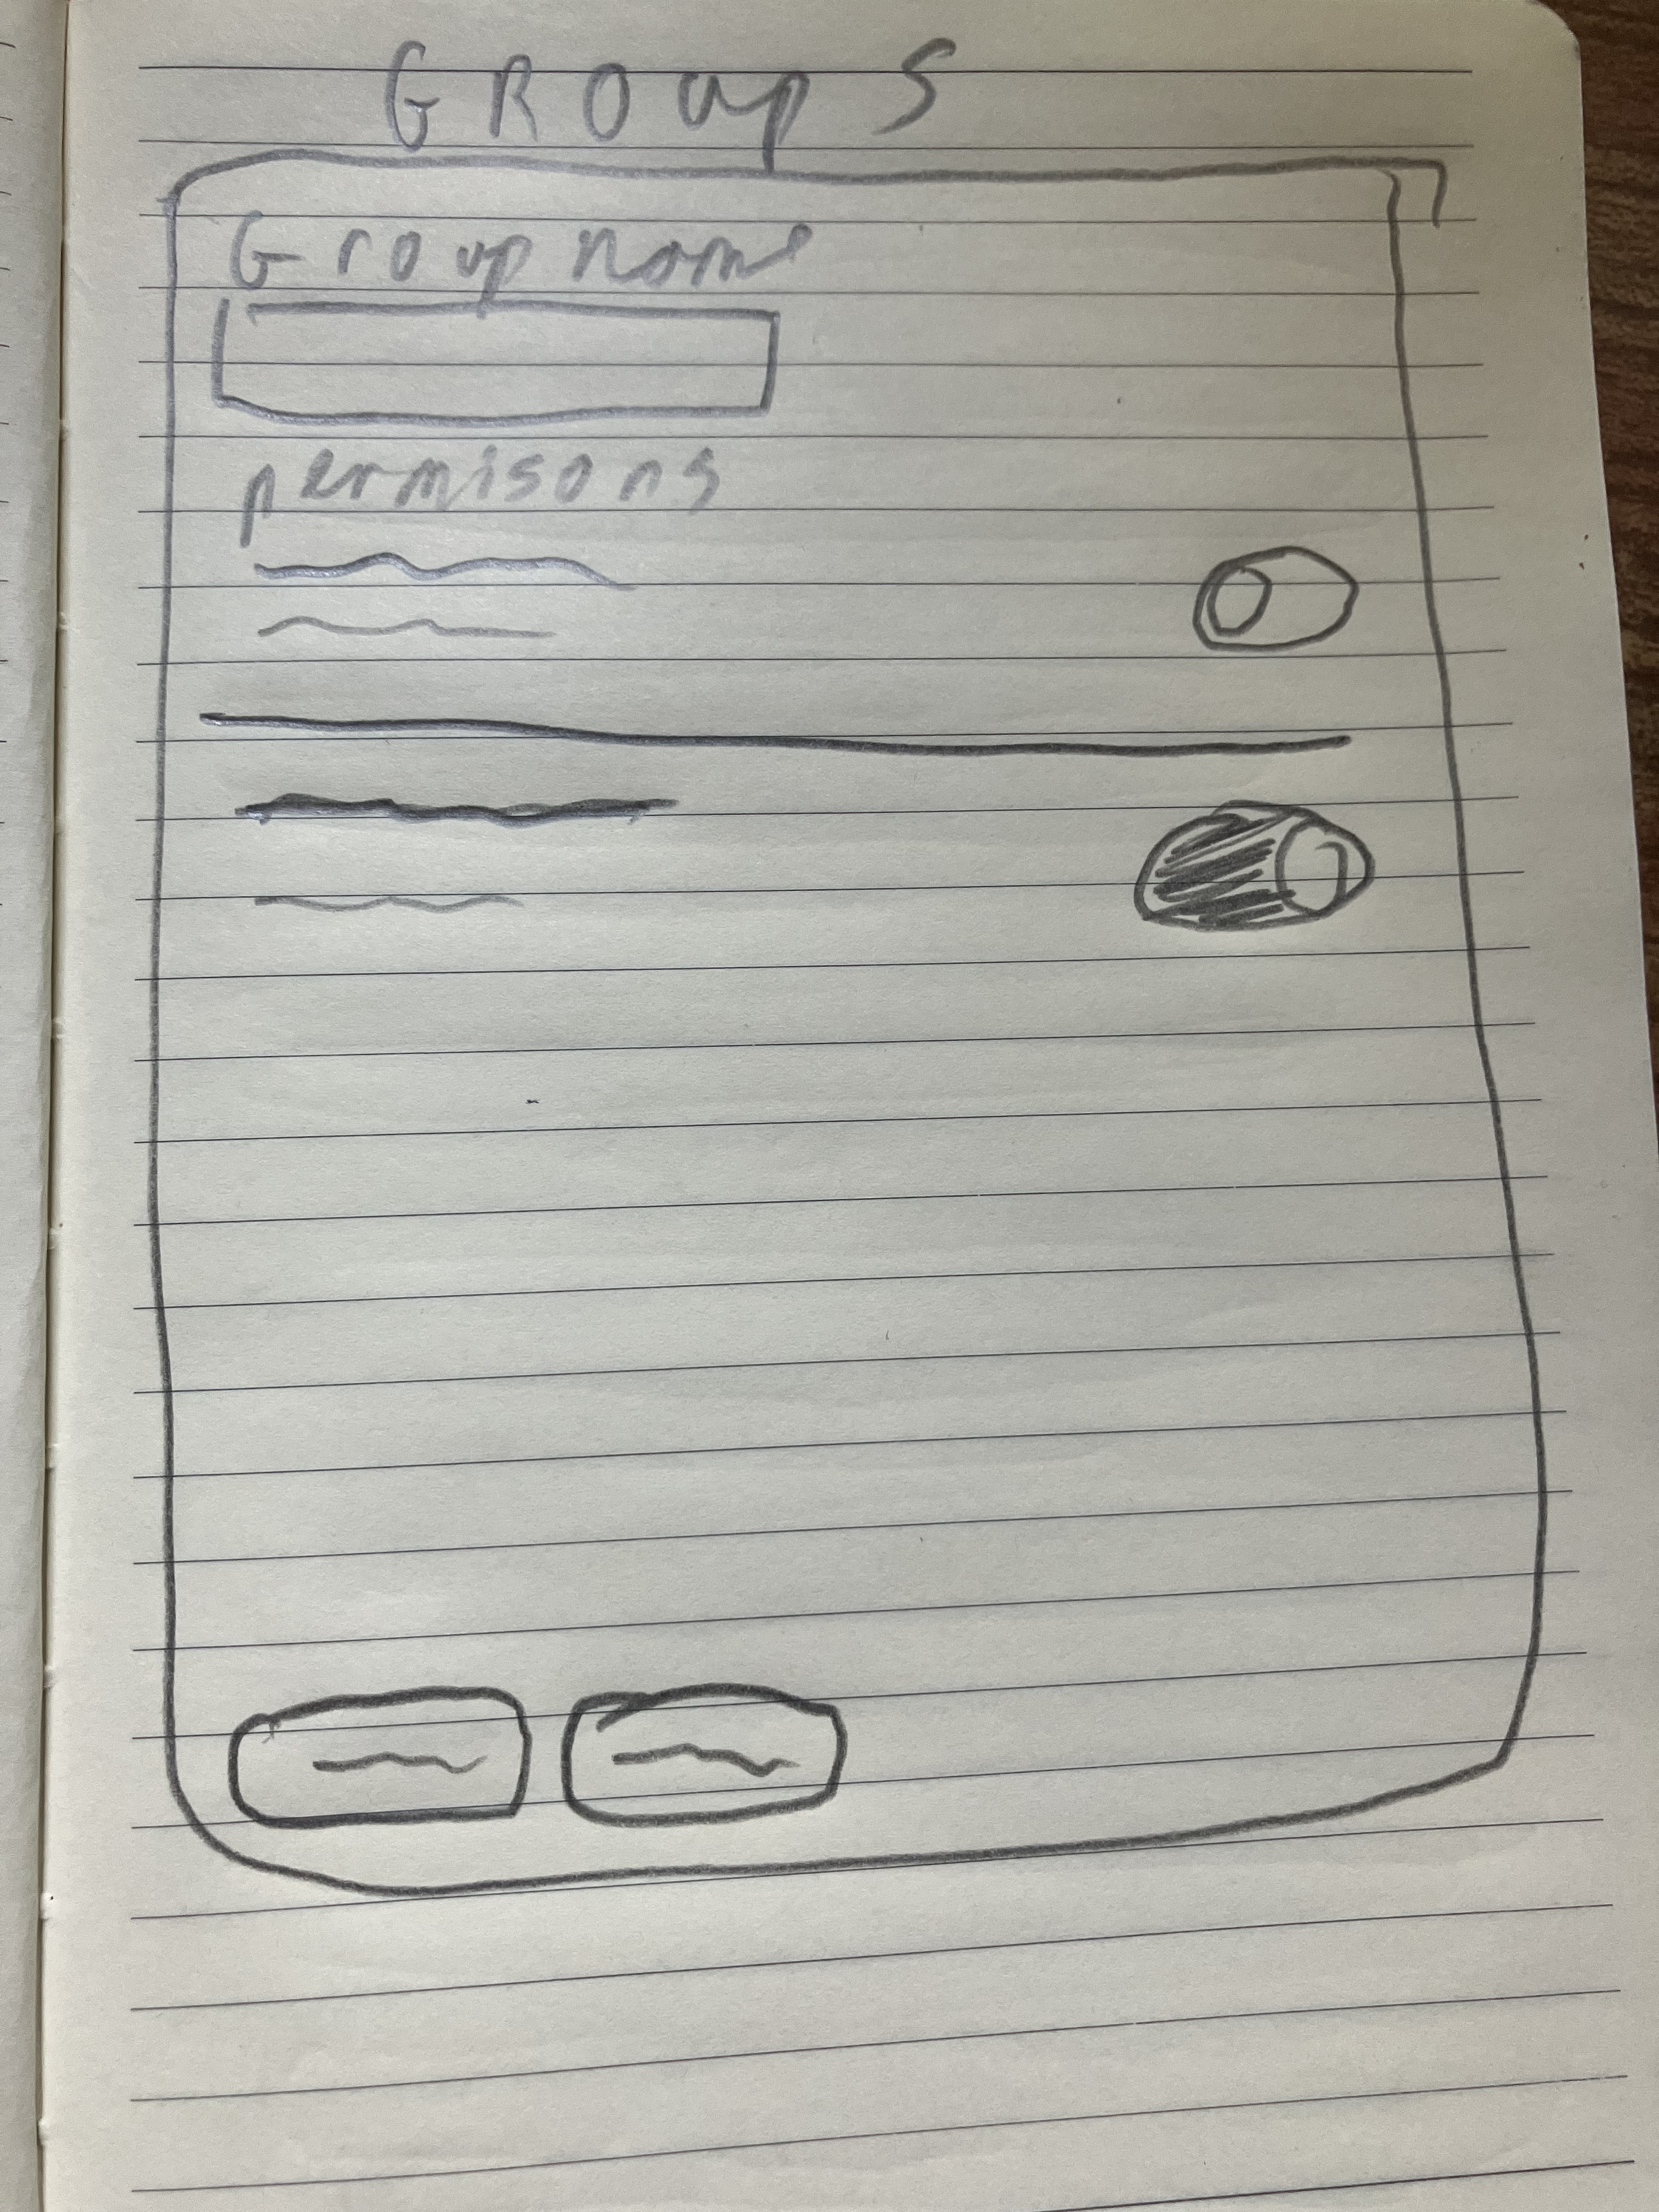 GROupS
Group name
permisons